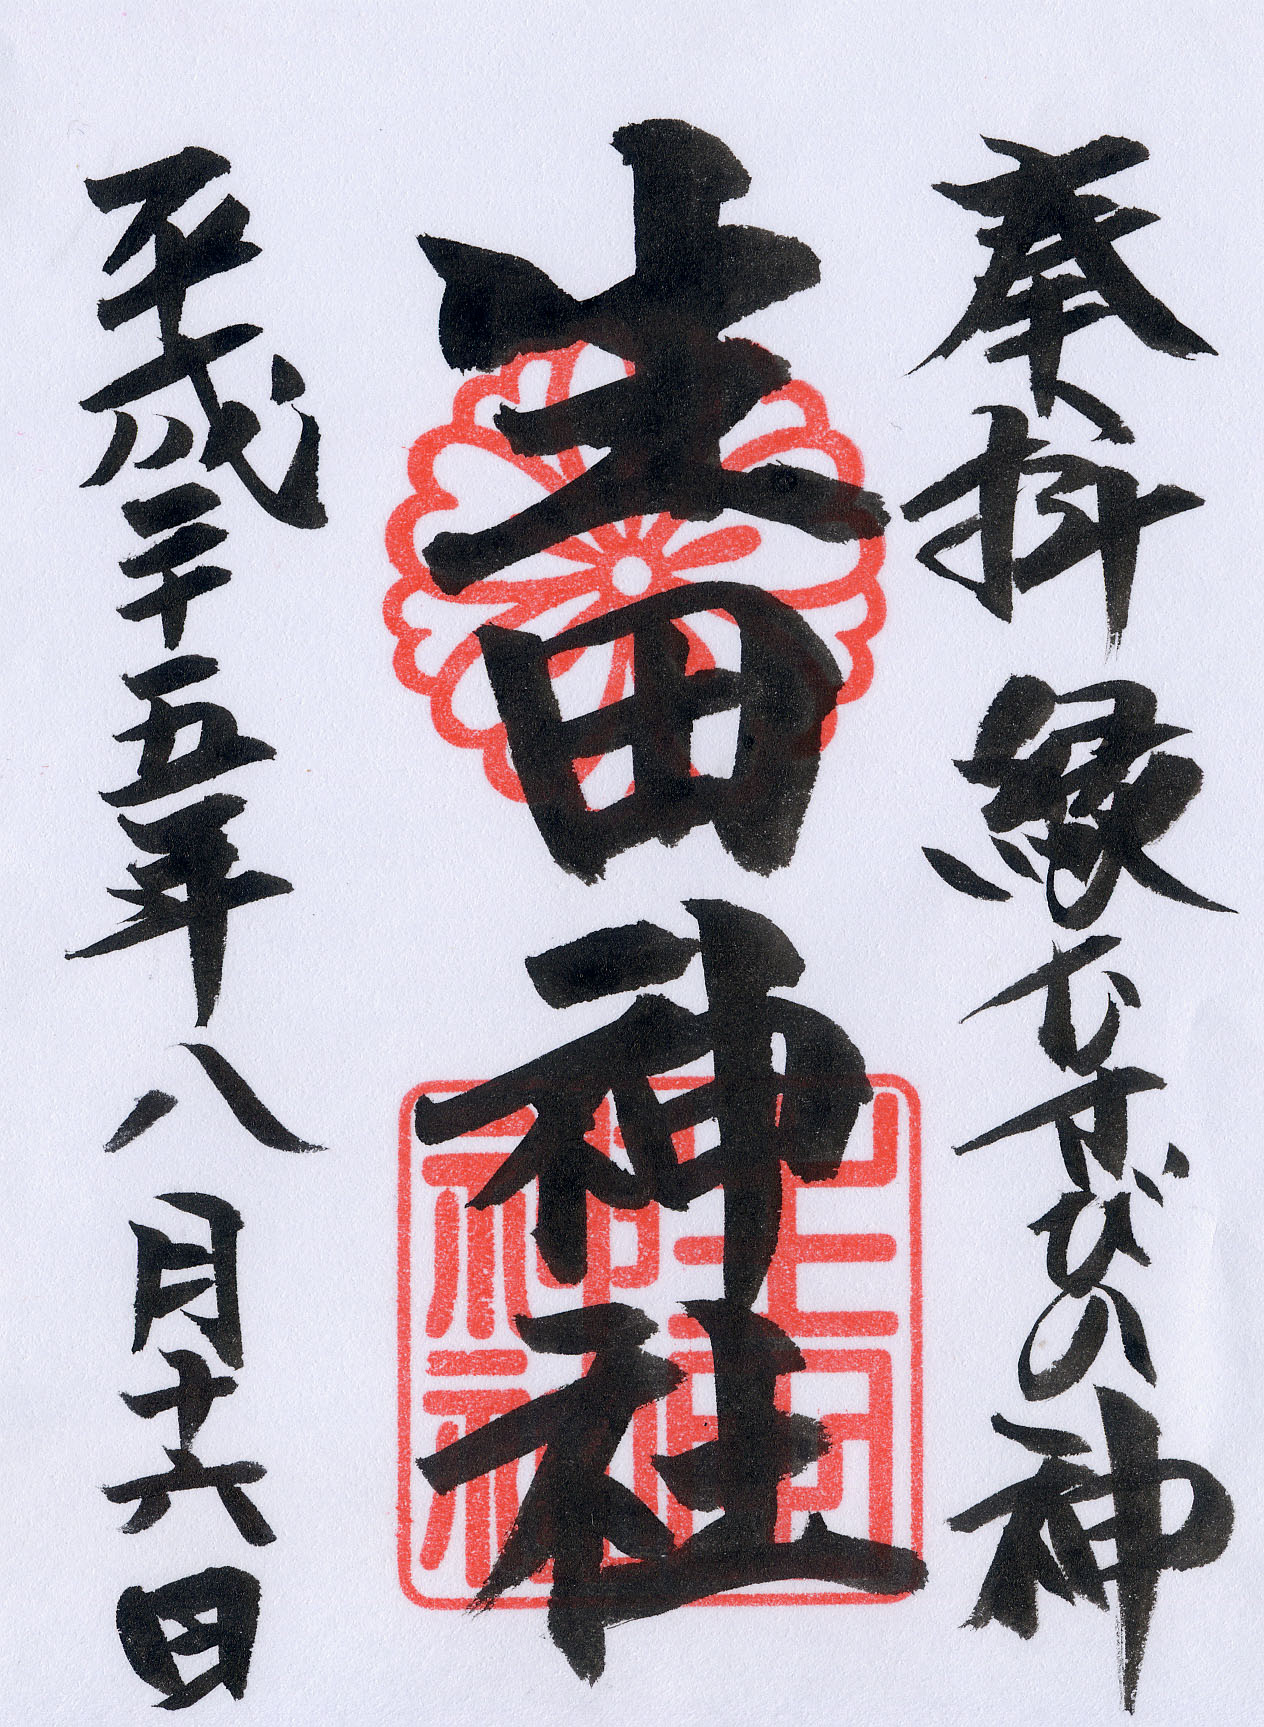 奉拝 縁むすびの神
生田神社
生田神社
平成二十五年八月十六日